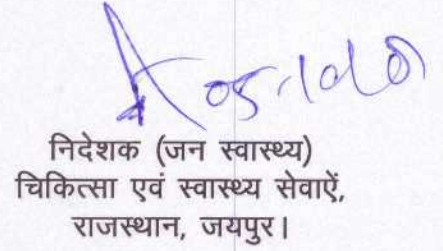 निदेशक (जन स्वास्थ्य)
चिकित्सा एवं स्वास्थ्य सेवाऐं,
राजस्थान, जयपुर।